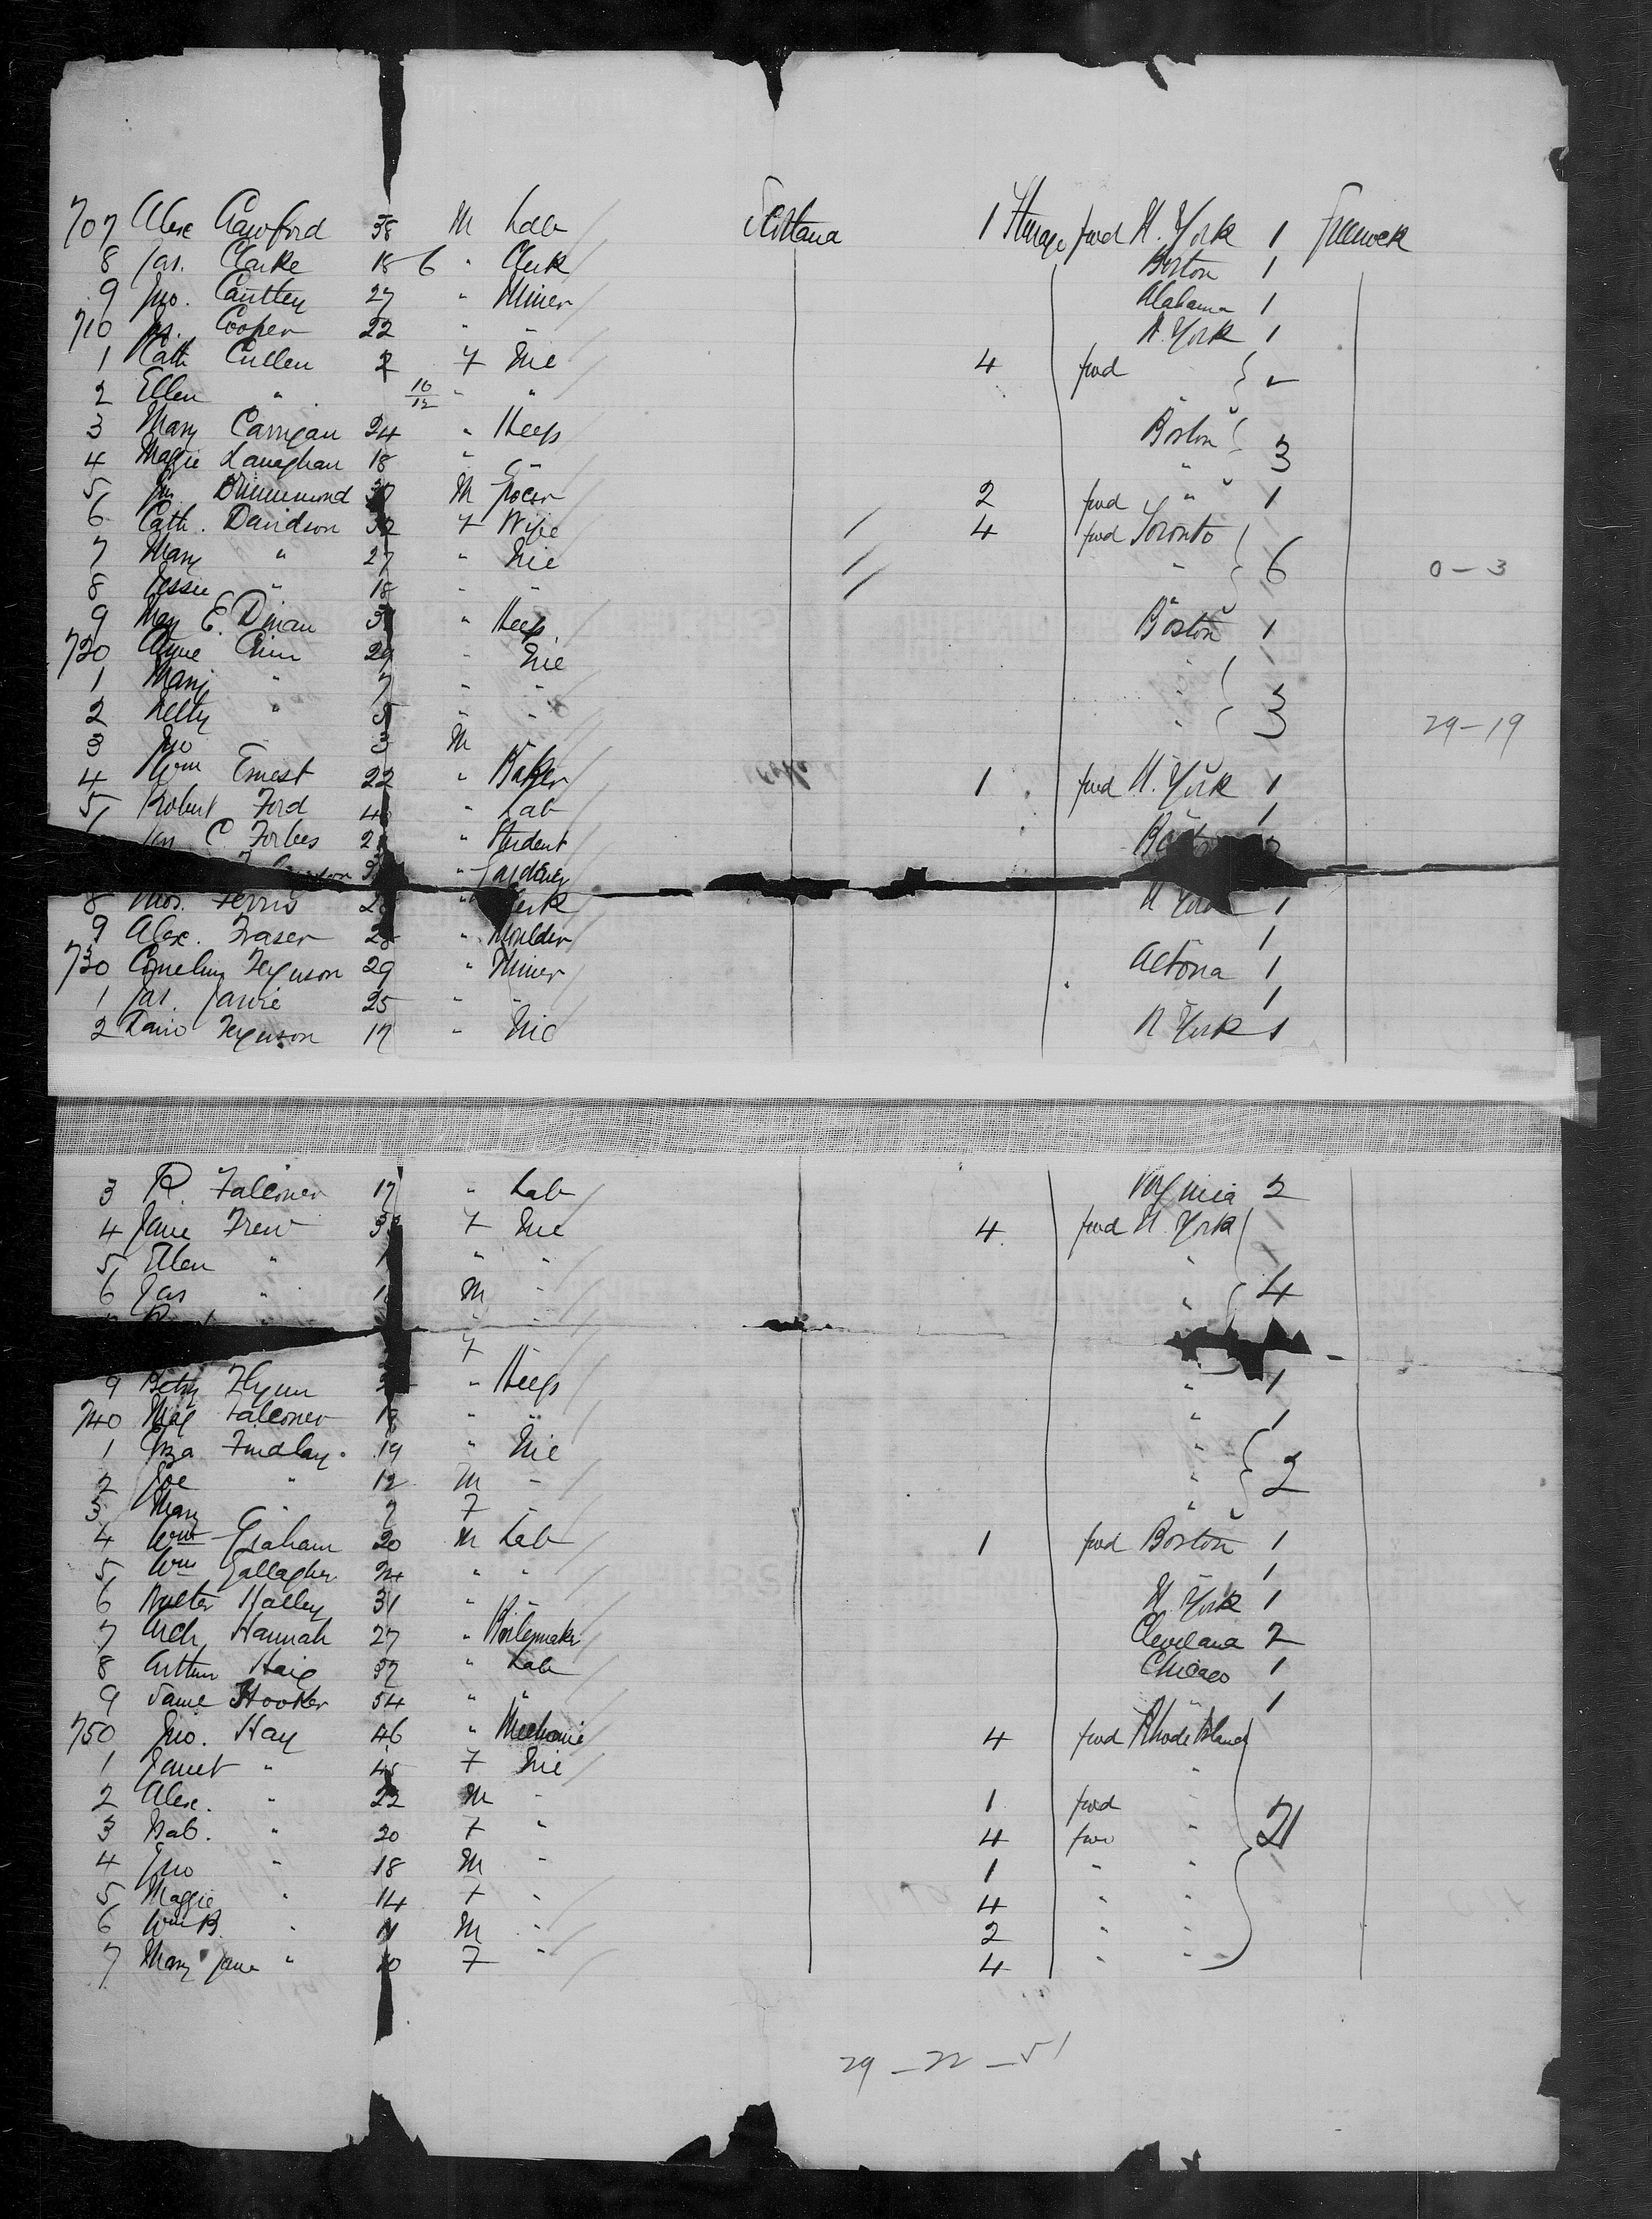 707 Alex Crawford 38 M Lab Scotland 1 Steerage fwd N. York 1 Greenock
8 Jas. Clarke 18 6 " Clerk Boston 1
9 Jno. Cauttey 27 " Miner Alabama 1
710 Jas. Cooper 22 " " N. York 1
1 Cath Cullen 2 F Nie 4 fwd "
2 Ellen " 10/12 " " " 2
3 Mary Carrigan 24 " Keep Boston
4 Maggie Lanaghan 18 " " " 3
5 Jn. Drummond M Grocer 2 fwd " 1
6 Cath. Davidson 32 F Wife 4 fwd Toronto
7 Mary " 27 " Nie " 6 0-3
8 Jessie " 18 " " "
9 May E. Dinan 3 " Keep Boston 1
720 Annie 29 Nie "
1 Mary " 7 " " " 3
2 Nelly " 5 " " " 29-19
3 Jno 3 M
4 Wm Ernest 22 " Baker 1 fwd N. York 1
5 Robert Ford 4 " Lab " 1
C. Forbes 2 " Student
3 " Gardener
8 Thos. Ferris 2 " Clerk N York 1
9 Alex. Fraser 28 " Moulder " 1
730 Cornelius Ferguson 29 " Miner Altona 1
1 Jas. Jarvie 25 " " " 1
2 David Ferguson 17 " Nie N York 1
3 R. Falconer 17 " Lab Virginia 2
4 Jane Frew 3 F Nie 4 fwd N. York
5 Ellen " 1 " " "
6 Jas " 1 M " " 4
F
9 Betsy Flynn " Keep " 1
740 Mag Falconer 18 " " " 1
1 Eliza Findlay 19 " Nie "
2 Joe " 12 M " " 2
3 Mary " 7 F " "
4 Wm Graham 20 M Lab 1 fwd Boston 1
5 Wm Gallagher 24 " " " 1
6 Walter Halley 31 " " N York 1
7 Arch Hannah 27 " Boilermaker Cleveland 2
8 Arthur Haig 37 " Lab Chicago 1
9 Hooker 54 " " " 1
750 Jno. Hay 46 " Mechanic 4 fwd Rhode Island
1 Janet " 45 F Nie "
2 Alex. " 22 M " 1 fwd "
3 " 20 F " 4 fwd " 21
4 Jno " 18 M " 1 " "
5 Maggie " 14 F " 4 " "
6 Wm B. " 11 M " 2 " "
7 Mary Jane " 10 F " 4 " "
29-22-51